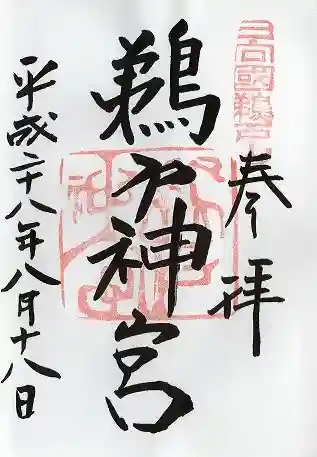 日向國鵜戸
奉拝
鵜戸神宮
平成二十八年八月十八日